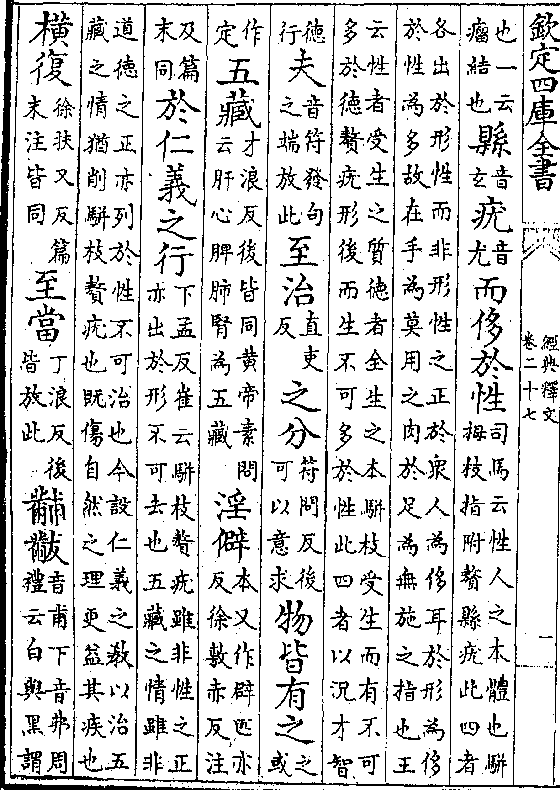 欽定四庫全書
經典釋文
卷二十七
一
也一云瘤結也縣音玄疣音尤而侈於性司馬云性人之本體也駢拇枝指附贅縣疣此四者
各出於形性而非形性之正於衆人為侈耳於形為侈於性為多故在手為莫用之肉於足為無施之指也王
云性者受生之質德者全生之本駢枝受生而有不可多於德贅疣形後而生不可多於性此四者以況才智
德行夫音符發句之端放此至治直吏反之分符問反後可以意求物皆有之之或
作定五藏才浪反後皆同黄帝素問云肝心脾肺腎為五藏淫僻本又作辟匹亦反徐敷亦反注
及篇末同於仁義之行下孟反崔云駢枝贅疣雖非性之正亦出於形不可去也五藏之情雖非
道德之正亦列於性不可治也今設仁義之教以治五藏之情猶削駢枝贅疣也既傷自然之理更益其疾也
橫復徐扶又反篇末注皆同至當丁浪反後皆放此黼黻音甫下音弗周禮云白與黑謂